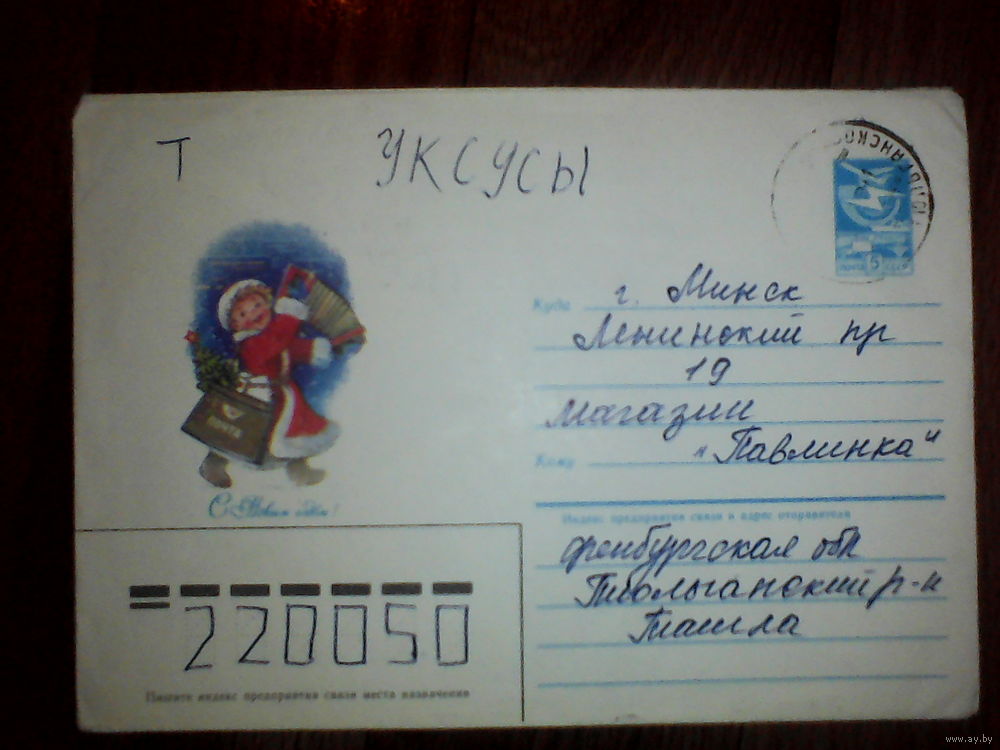 Т УКСУСЫ
ПОЧТА 5 СССР
Куда г. Минск
Ленинский пр
19
магазин
Кому "Павлинка"
ПОЧТА
С Новым годом!
Индекс предприятия связи и адрес отправителя
Оренбургская обл
Тюльганский р-н
Ташла
220050
Пишите индекс предприятия связи места назначения
www.ay.by